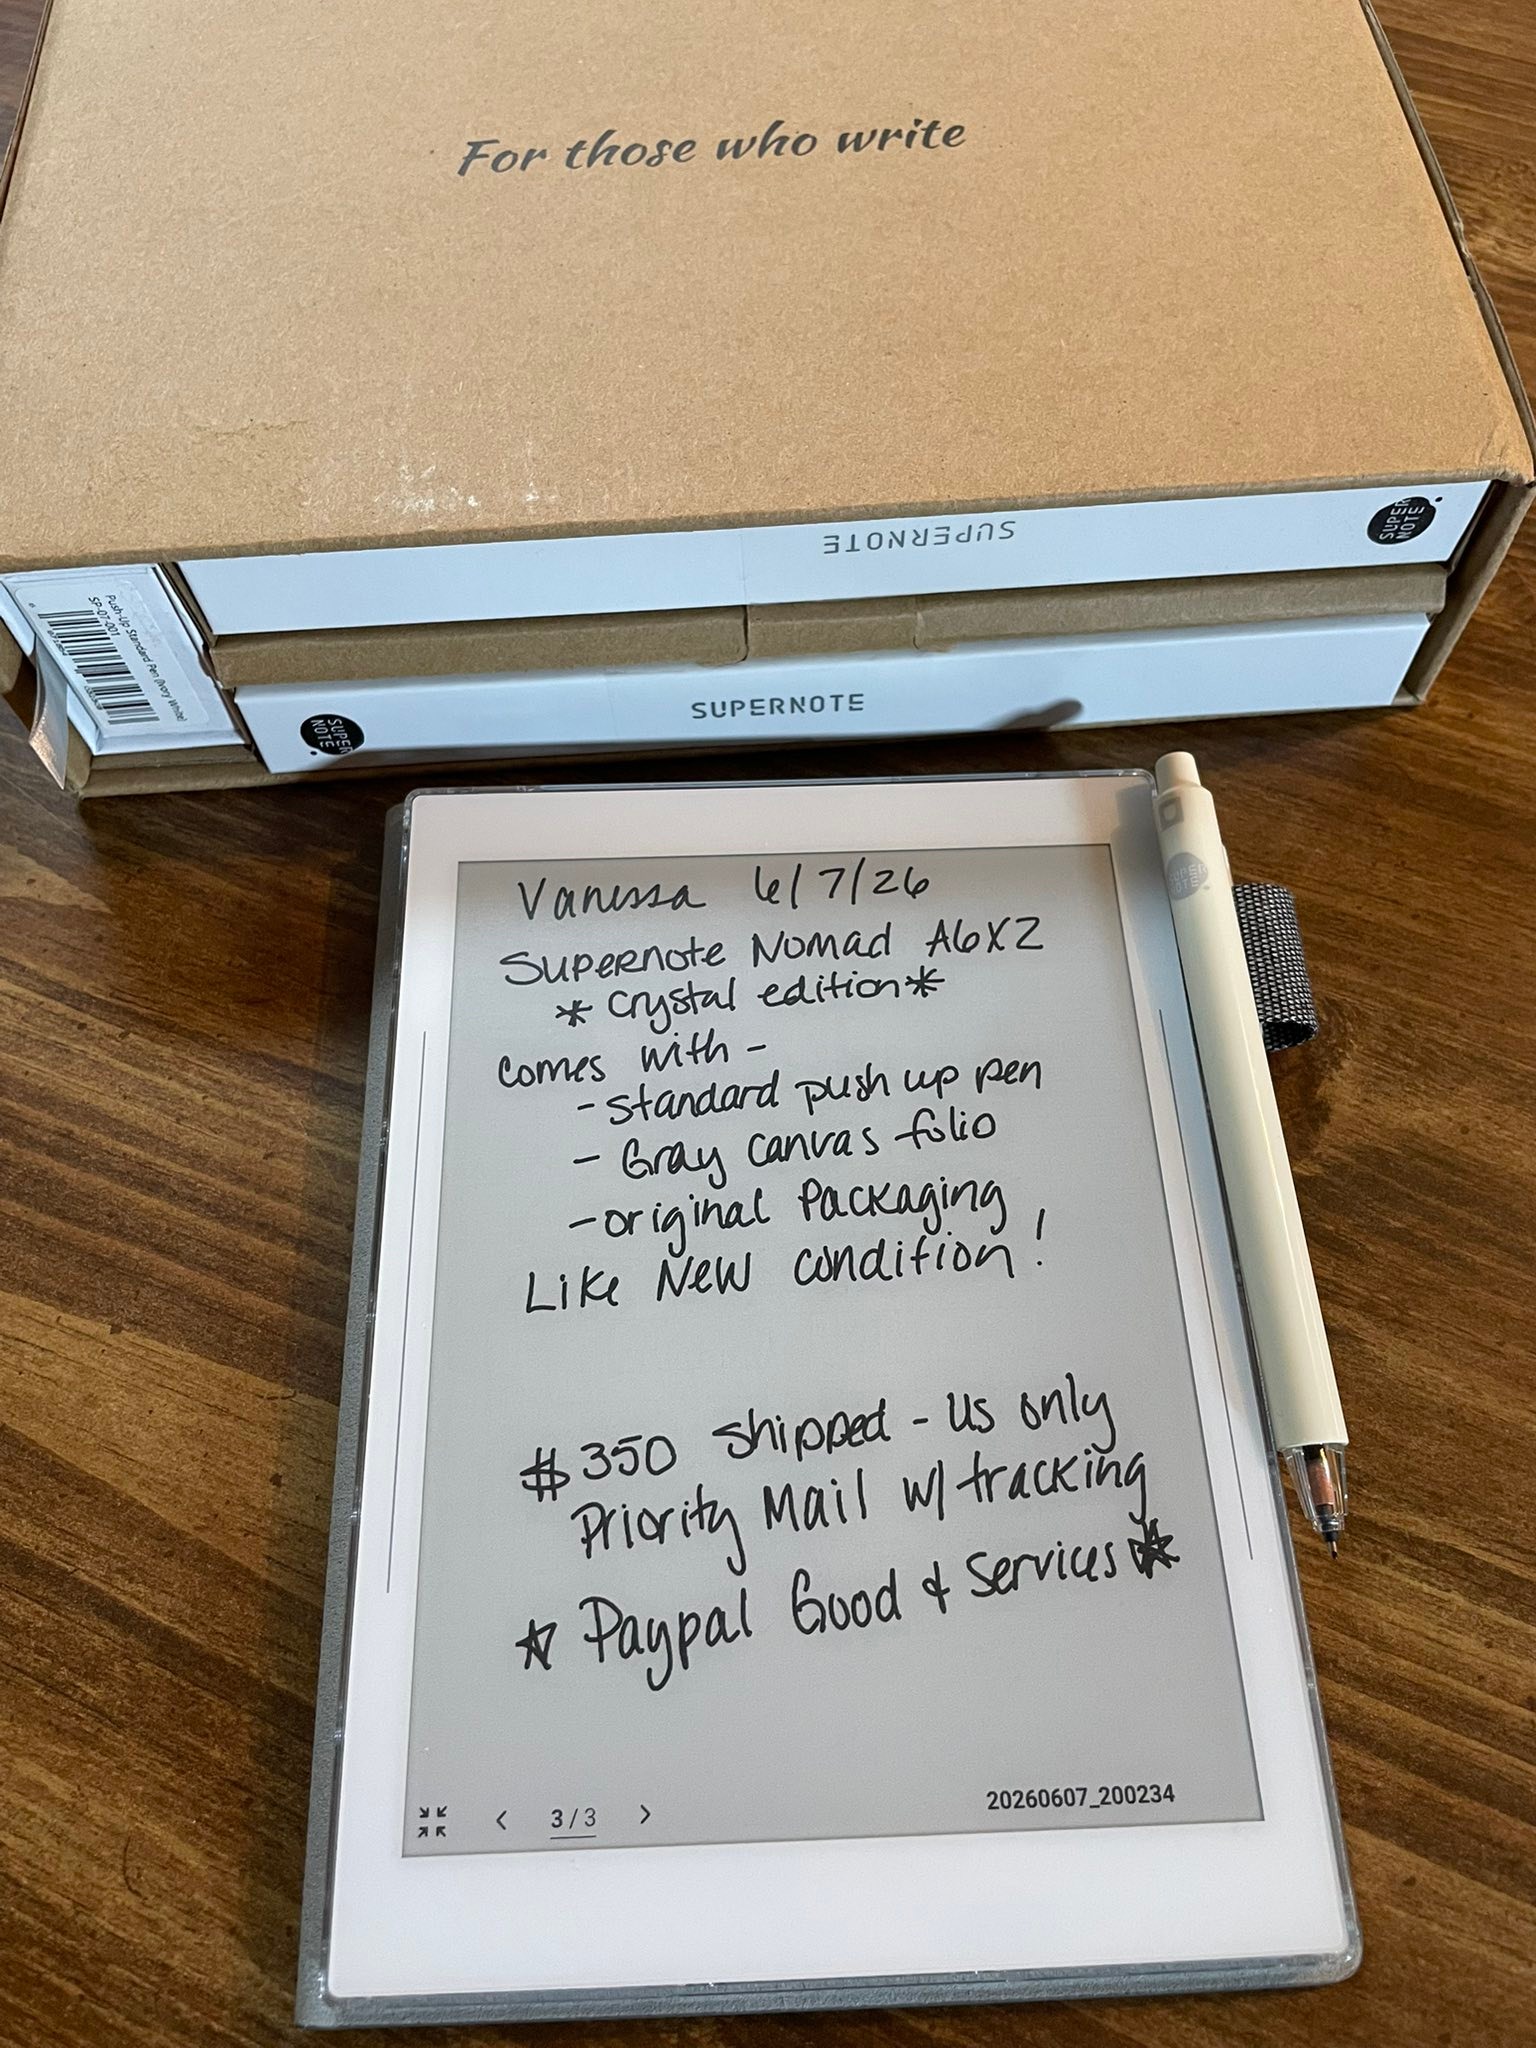 For those who write
SUPERNOTE
SUPER
NOTE
Push-Up Standard Pen (Ivory White)
SP-07-001
SUPERNOTE
SUPER
NOTE
SUPER
NOTE
Vanessa 6/7/26
Supernote Nomad A6X2
* Crystal edition *
Comes with -
- Standard push up pen
- Gray canvas folio
- original Packaging
Like New condition!
$350 shipped - US only
Priority Mail w/ tracking
☆ Paypal Good & Services ☆
3 / 3
20260607_200234